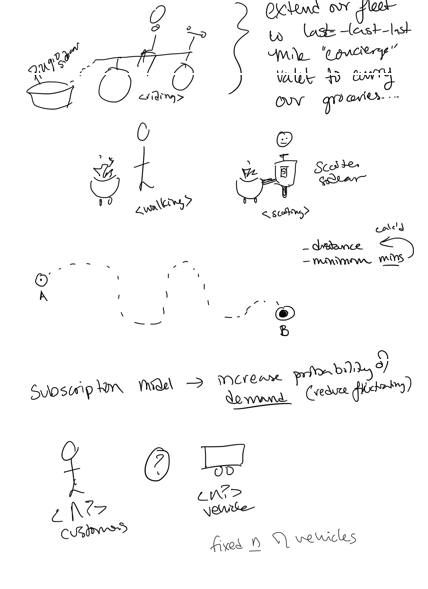 extend our fleet
to last-last-last
mile "concierge"
valet to carry
our groceries....
<riding>
<walking>
<scooting>
scooter
sidecar
calc'd
- distance
- minimum mins
A
B
subscription model → increase probability of
demand (reduce fluctuating)
?
<n?>
customers
<n?>
vehicle
fixed n of vehicles